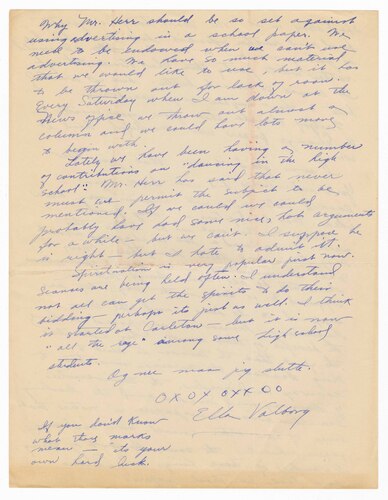 Why Mr. Herr should be so set against
using advertising in a school paper. We
need to be endowed when we can't use
advertising. We have so much material
that we would like to use, but it has
to be thrown out for lack of room.
Every Saturday when I am down at the
News office we throw out almost a
column and we could have lots more
to begin with.
Lately we have been having a number
of contributions on "dancing in the high
school". Mr. Herr has said that never
must we permit the subject to be
mentioned. If we could we could
probably have had some nice, hot arguments
for a while – but we can't. I suppose he
is right – but I hate to admit it.
Spiritualism is very popular just now.
Seances are being held often. I understand
not all can get the spirits to do their
bidding – perhaps its just as well. I think
it started at Carleton – but it is now
"all the rage" among some high school
students.
Og nee maa jeg slutte.
OXOXOXXOO
Ella Valborg
If you don't know
what these marks
mean – its your
own hard luck.